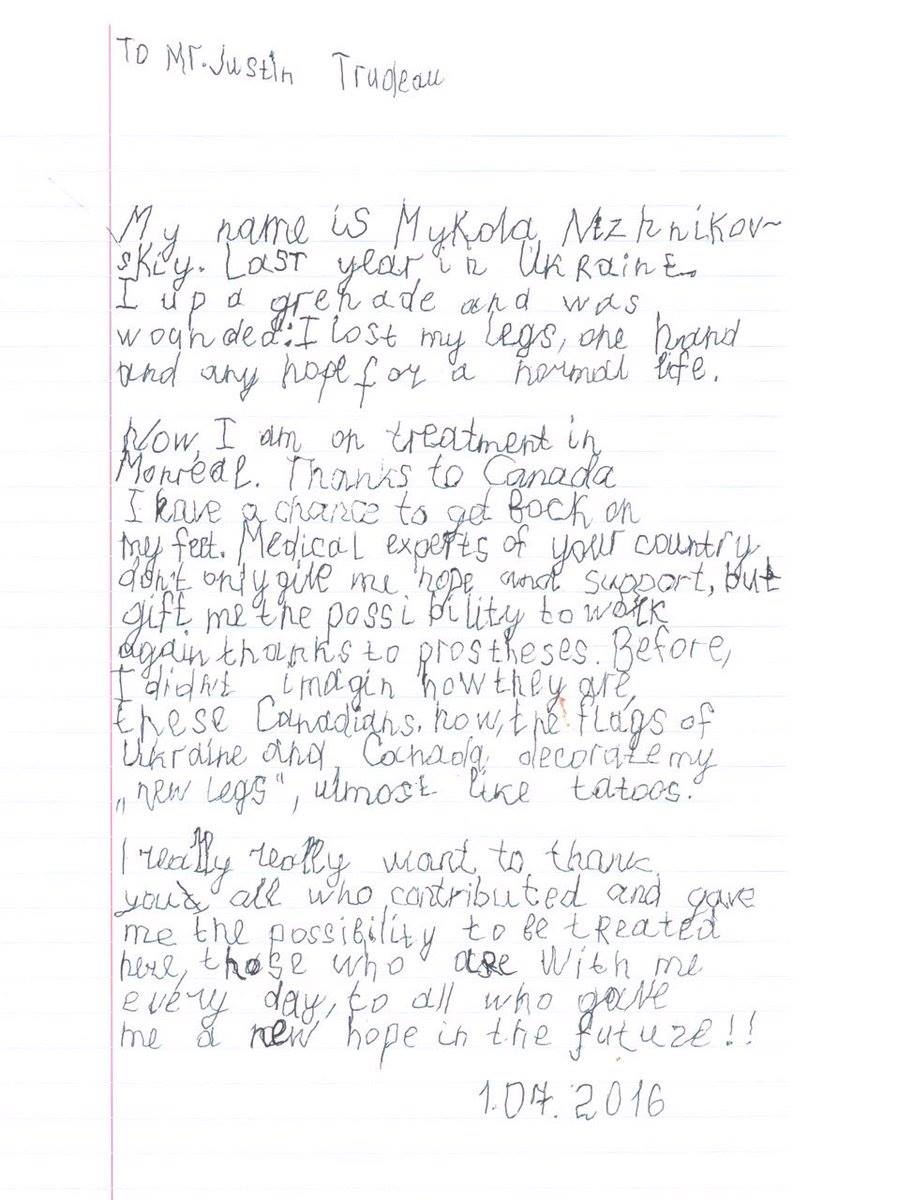 To Mr. Justin Trudeau
My name is Mykola Nizhnikov~
skiy. Last year in Ukraine
I up a grenade and was
wounded: I lost my legs, one hand
and any hope for a normal life.
Now, I am on treatment in
Monréal. Thanks to Canada
I have a chance to get back on
my feet. Medical experts of your country
don't only give me hope and support, but
gift me the possibility to work
again thanks to prostheses. Before,
I didn't imagin how they are,
these Canadians. now, the flags of
Ukraine and Canada decorate my
„new legs", almost like tatoos.
I really really want to thank
you & all who contributed and gave
me the possibility to be treated
here, those who are with me
every day, to all who gave
me a new hope in the future!!
1.07.2016